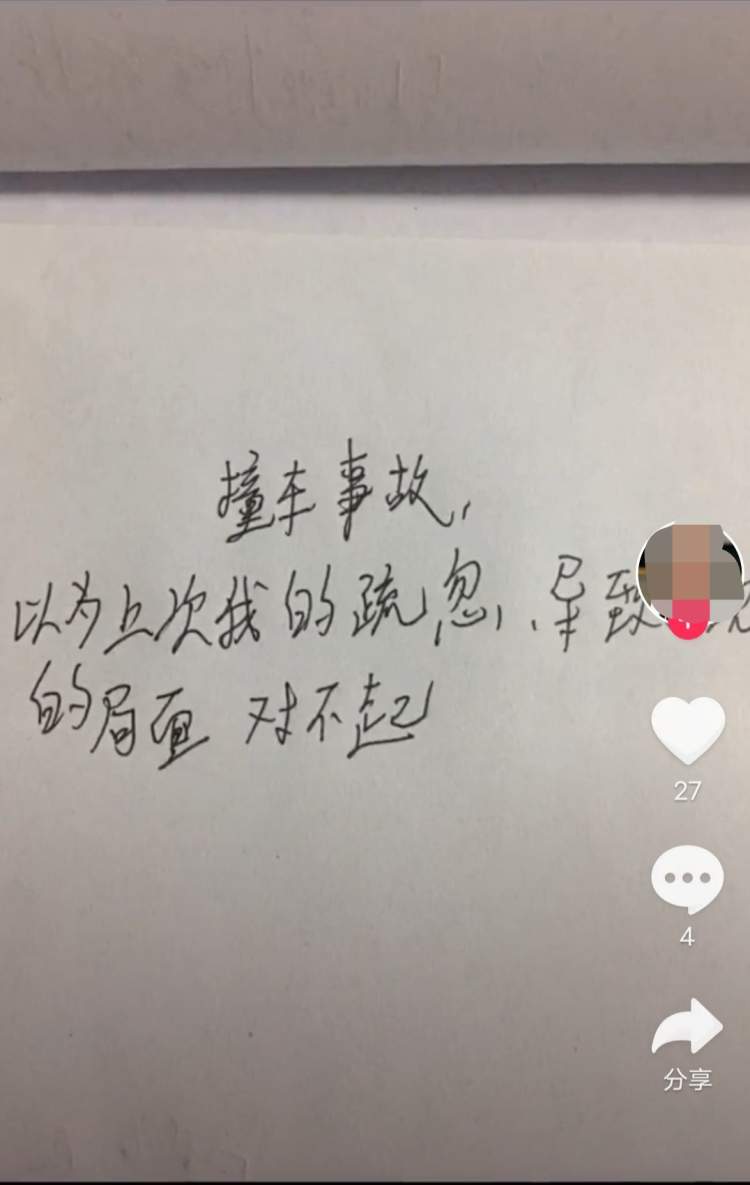 撞车事故,
以为上次我的疏忽,导致
的局面 对不起
27
4
分享